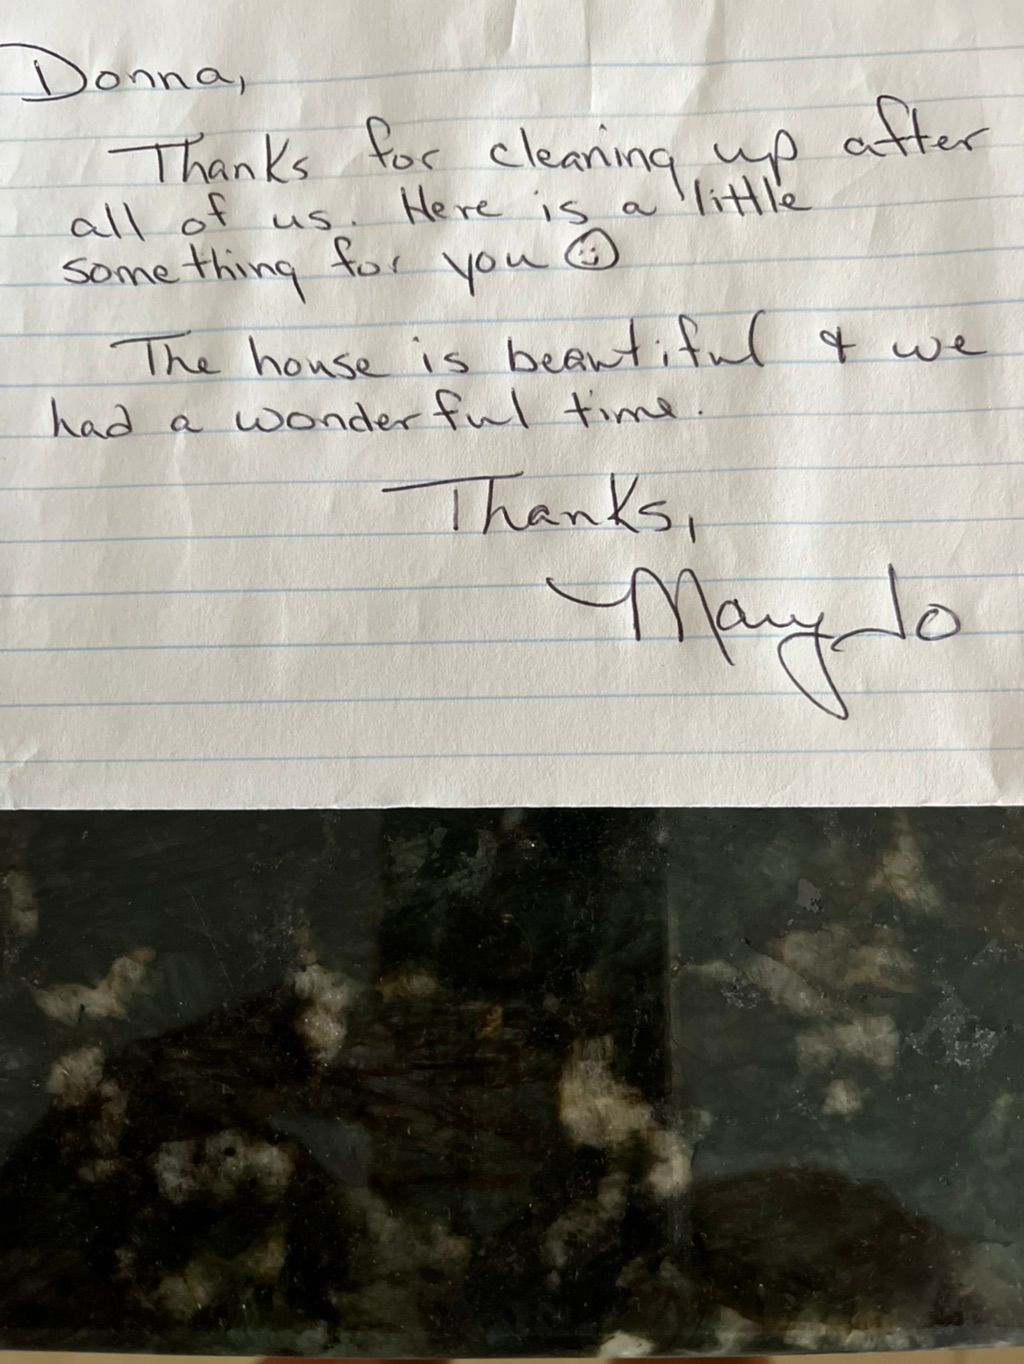 Donna,
Thanks for cleaning up after
all of us. Here is a little
something for you ☺
The house is beautiful & we
had a wonderful time.
Thanks,
Mary Jo